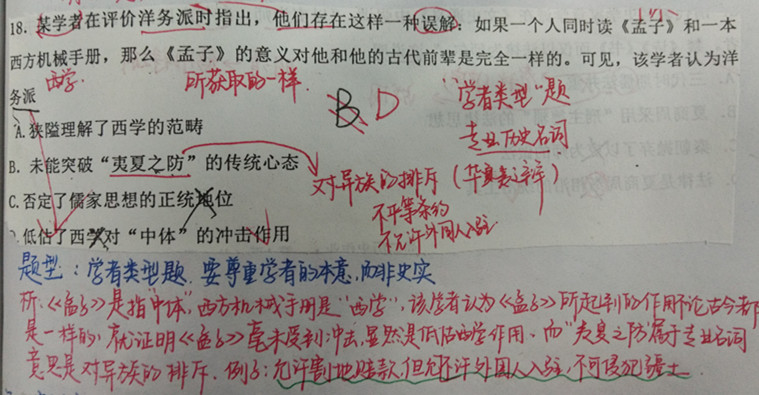 18. 某学者在评价洋务派时指出，他们存在这样一种误解：如果一个人同时读《孟子》和一本
西方机械手册，那么《孟子》的意义对他和他的古代前辈是完全一样的。可见，该学者认为洋
西学. 所获取的一样.
务派
B D
"学者类型"题
专业历史名词
A. 狭隘理解了西学的范畴
B. 未能突破“夷夏之防”的传统心态
对异族的排斥（华夷之辨）
不平等条约
不允许外国人入驻
C. 否定了儒家思想的正统地位
低估了西学对“中体”的冲击作用
题型：学者类型题，要尊重学者的本意，而非史实
析：《孟子》是指"中体"，西方机械手册是"西学"，该学者认为《孟子》所起到的作用不论古今都
是一样的，就证明《孟子》毫未受到冲击，显然是低估西学作用。而"夷夏之防"属于专业名词
意思是对异族的排斥。例子：允许割地赔款，但不允许外国人入驻，不可侵犯疆土